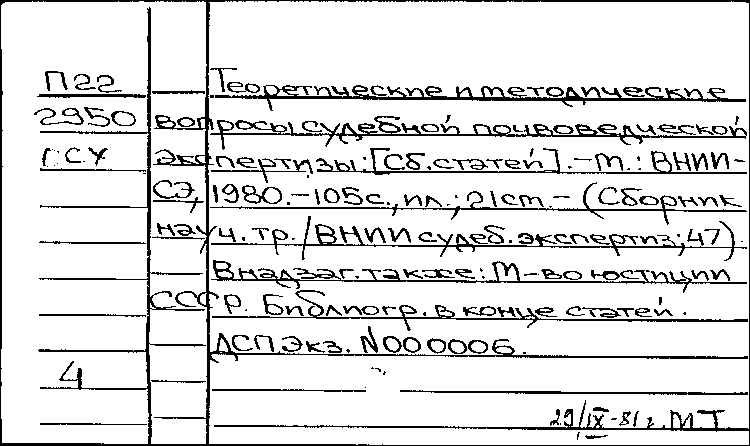 П22 Теоретические и методические
2950 вопросы судебной почвоведческой
ГСУ экспертизы: [Сб. статей]. - М.: ВНИИ-
СЭ, 1980. - 105 с., ил.; 21 см. - (Сборник
науч. тр. / ВНИИ судеб. экспертиз; 47).
В надзаг. также: М-во юстиции
СССР. Библиогр. в конце статей.
ДСП. Экз. N000006.
4
29/IX-81 г. МТ